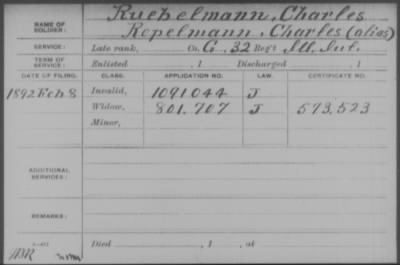 NAME OF SOLDIER: Ruebelmann, Charles
Repelmann, Charles (alias)
SERVICE: Late rank, Co. G, 32 Reg't Ill. Inf.
TERM OF SERVICE: Enlisted , 1 Discharged , 1
DATE OF FILING. CLASS. APPLICATION NO. LAW. CERTIFICATE NO.
1892 Feb 8 Invalid, 1091044 J
Widow, 801,707 J 593,523
Minor,
ADDITIONAL SERVICES:
REMARKS:
Died , 1 , at